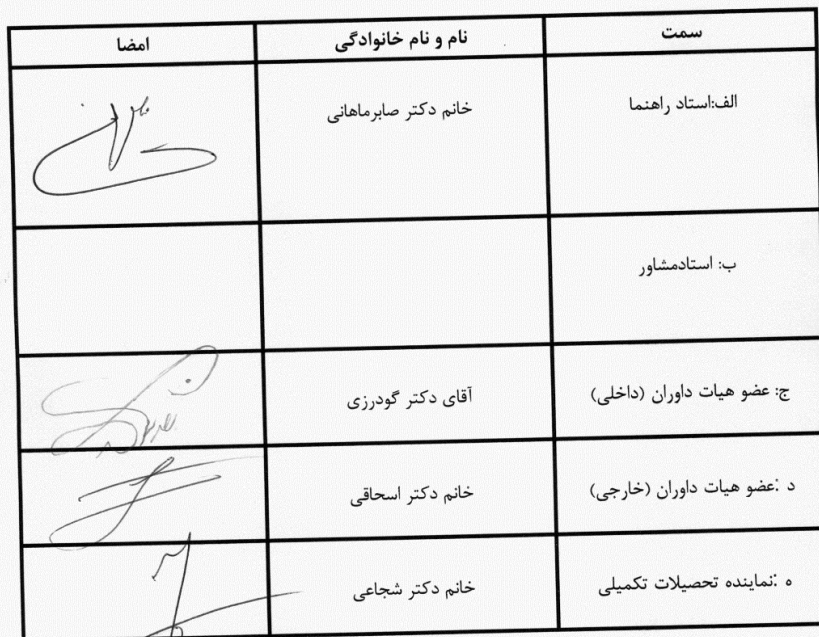 سمت نام و نام خانوادگی امضا
الف:استاد راهنما خانم دکتر صابرماهانی
ب: استادمشاور
ج: عضو هیات داوران (داخلی) آقای دکتر گودرزی
د :عضو هیات داوران (خارجی) خانم دکتر اسحاقی
ه :نماینده تحصیلات تکمیلی خانم دکتر شجاعی